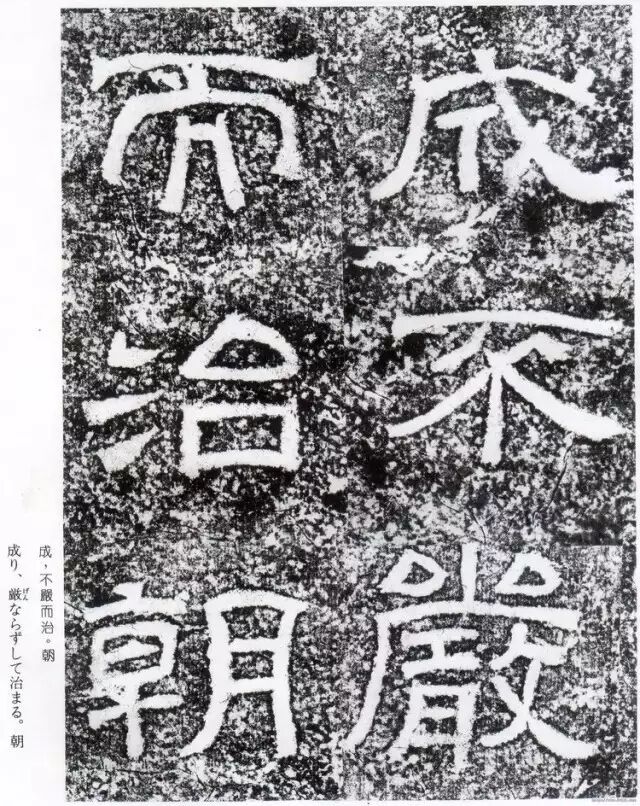 成不嚴
而治朝
成，不嚴而治。朝
成り、厳ならずして治まる。朝
げん